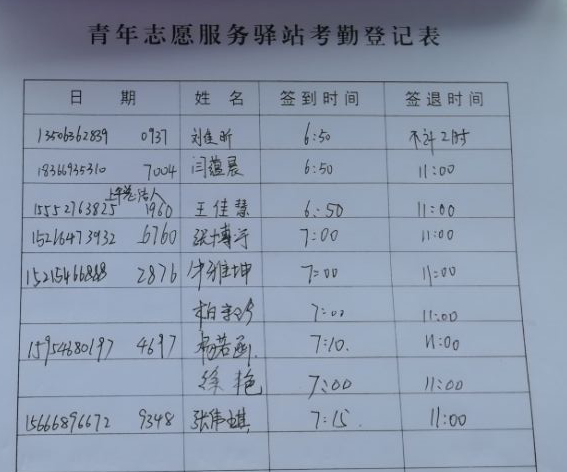 青年志愿服务驿站考勤登记表
日 期 姓 名 签到时间 签退时间
13506362839 0937 刘佳昕 6:50 不计2时
18366935310 7004 闫蕴晨 6:50 11:00
上午总负责人
15552763825 1960 王佳慧 6:50 11:00
15216473932 6760 张博 7:00 11:00
15215466868 2876 雅坤 7:00 11:00
柏 7:00 11:00
15954680197 4697 杨若函 7:10 11:00
徐艳 7:00 11:00
15666896672 9348 张伟琪 7:15 11:00